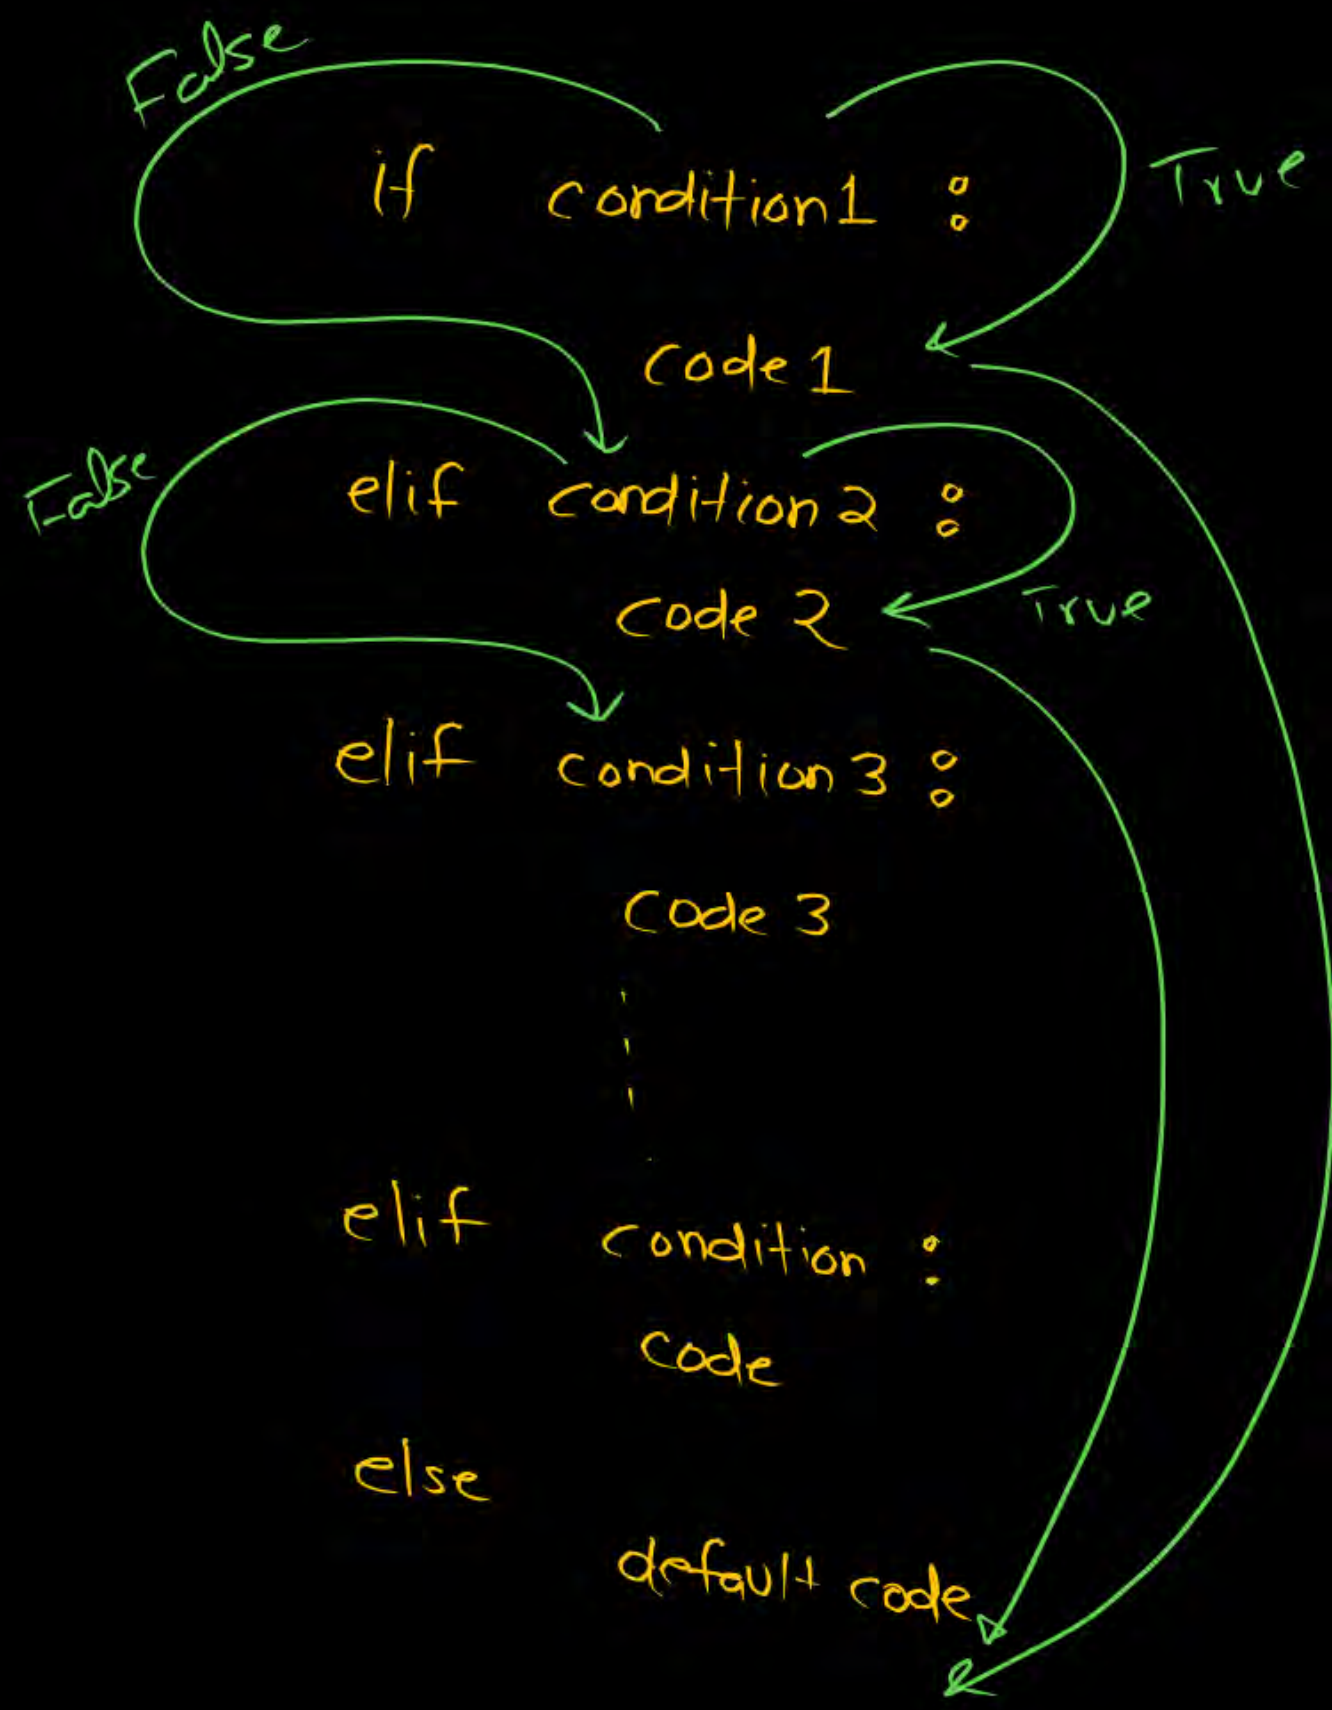 False
if condition1 :
True
code 1
False
elif condition 2 :
code 2
True
elif condition 3 :
code 3
elif condition :
code
else
default code